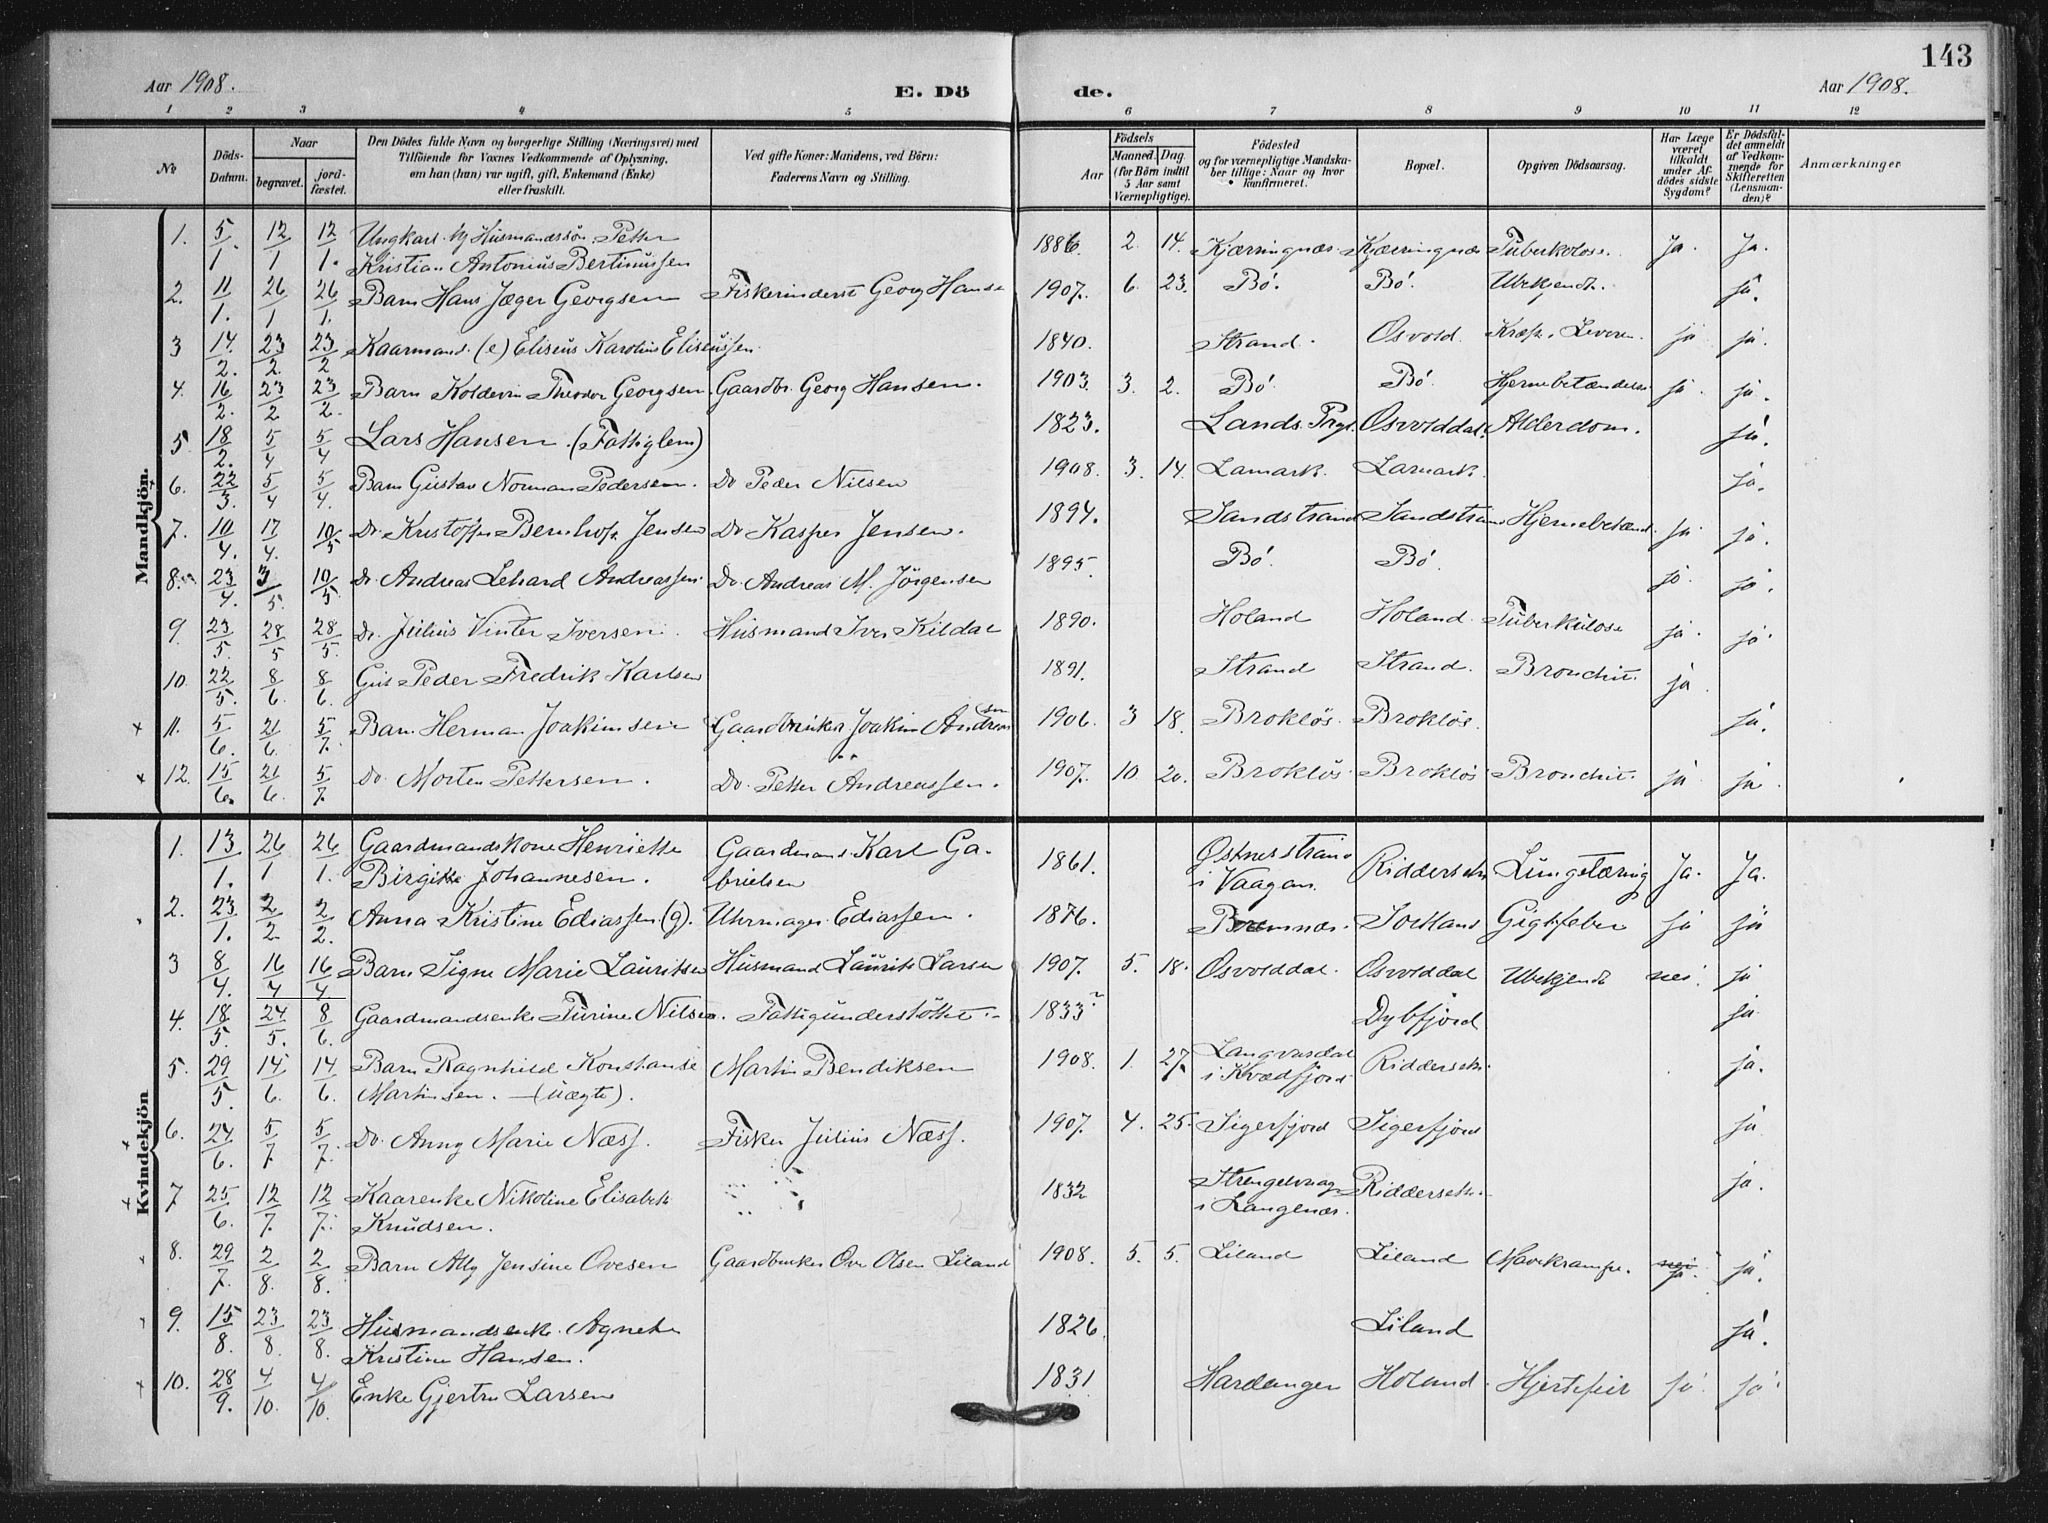 143
Aar 1908.
E. Dö de.
Aar 1908.
1 2 3 4 5 6 7 8 9 10 11 12
No
Döds-Datum.
Naar
begravet.
jord-fæstet.
Den Dödes fulde Navn og borgerlige Stilling (Næringsvei) med
Tilföiende for Voxnes Vedkommende af Oplysning,
om han (hun) var ugift, gift, Enkemand (Enke)
eller fraskilt.
Ved gifte Koner: Mandens, ved Börn:
Faderens Navn og Stilling.
Födsels
Aar
Maaned. Dag.
(for Börn indtil
5 Aar samt
Værnepligtige).
Födested
og for værnepligtige Mandska-
ber tillige: Naar og hvor
konfirmeret.
Bopæl.
Opgiven Dödsaarsag.
Har Læge
været
tilkaldt
under Af-
dödes sidste
Sygdom?
Er Dödsfal-
det anmeldt
af Vedkom-
mende for
Skifteretten
(Lensman-
den)?
Anmærkninger
Mandkjön.
1. 5/1 12/1 12/1. Ungkarl Husmandssön Petter 1886 2. 14. Kjærringnæs Kjærringnæs Tuberkolose. Ja. Ja.
Kristian Antonius Bertinussen
2. 11/1. 26/1 26/1. Barn Hans Jæger Georgsen Fiskerinderst Georg Hansen 1907. 6. 23. Bö. Bö. Ubekjendt. ja.
3 14/2. 23/2. 23/2 Kaarmand (e) Eliseus Karolius Eliseussen. 1840. Strand. Osvold. Kræft i Leveren. ja ja.
4. 16/2. 23/2 23/2. Barn Koldevin Theodor Georgsen. Gaardbr. Georg Hansen. 1903. 3. 2. Bö. Bö. Hjernebetændelse ja. ja.
5 18/2. 5/4 5/4 Lars Hansen. (Fattiglem) 1823. Lands. Prgl. Osvolddal. Alderdom. ja.
6. 22/3. 5/4 5/4. Barn Gustav Norman Pedersen. Do Peder Nilsen 1908. 3. 14. Lamark. Lamark. ja.
7. 10/4. 17/4. 10/5 Do. Kristoffer Bernhoft Jensen Do. Kasper Jensen. 1894. Sandstrand Sandstrand Hjernebetænd. ja ja.
8. 23/4. 3/5. 10/5 Do. Andreas Lehard Andreassen Do. Andreas M. Jörgensen 1895. Bö. Bö. ja. ja.
9. 23/5. 28/5 28/5. Do. Julius Vinter Iversen. Husmand Iver Kildal 1890. Holand Holand. Tuberkulose ja. ja.
10. 22/5. 8/6. 8/6. Gut Peder Fredrik Karlsen 1891. Strand Strand. Bronchit. ja
11. 5/6. 21/6. 5/7. Barn Herman Joakimsen Gaardbruker Joakim Andreassen 1906. 3 18. Brokløs. Brokløs. ja.
12. 15/6. 21/6. 5/7. Do. Morten Pettersen. Do. Petter Andreassen. 1907. 10. 20. Brokløs. Brokløs Bronchit. ja ja.
Kvindekjön
1. 13/1. 26/1 26/1. Gaardmandskone Henriette Gaardmand Karl Ga- 1861. Østnesstrand Riddersetr. Lungetæring Ja. Ja.
Birgitte Johannesen. brielsen i Vaagan.
2. 23/1. 2/2 2/2. Anna Kristine Ediassen (g). Uhrmager Ediassen. 1876. Bremnæs. Sortland Gigtfeber ja ja
3 8/4. 16/4 16/4 Barn Signe Marie Lauritsen Husmand Laurits Larsen 1907. 5. 18. Osvolddal. Osvolddal Ubekjendt nei. ja
4. 18/5. 24/5. 8/6. Gaardmandsenke Turine Nilsen. Fattigunderstöttet. 1833? Dybfjord ja
5. 29/5. 14/6. 14/6. Barn Ragnhild Konstanse Martin Bendiksen 1908. 1. 27. Langvasdal Riddersetr. ja.
Martinsen. — (uægte). i Kvædfjord
6. 24/6. 5/7. 5/7. Do. Anny Marie Næss. Fisker Julius Næss. 1907. 4. 25. Sigerfjord Sigerfjord ja
7 25/6. 12/7. 12/7. Kaarenke Nikoline Elisabeth 1832 Strengelvaag Riddersetr. ja.
Knudsen. i Langenæs.
8. 29/7. 2/8. 2/8. Barn Ally Jensine Ovesen Gaardbruker Ove Olsen Liland 1908. 5. 5. Liland Liland Mavekrampe. nei ja. ja.
9. 15/8. 23/8. 23/8. Husmandsenke Agnete 1826. Liland ja.
Kristine Hansen.
10. 28/9. 4/10. 4/10. Enke Gjertru Larsen 1831. Hardanger Holand. Hjertefeil ja. ja.